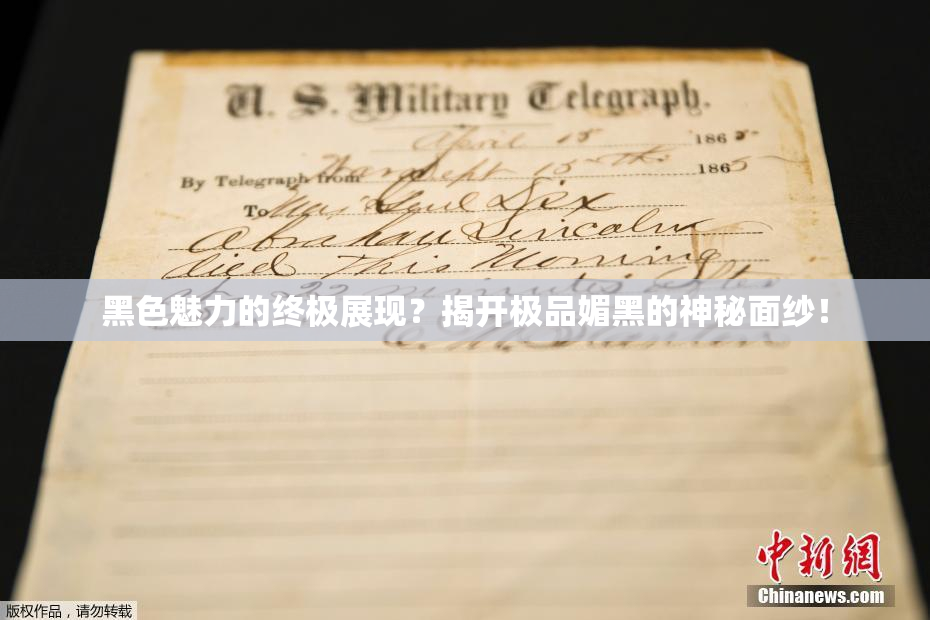 U. S. Military Telegraph.
April 15 1865
By Telegraph from War Dept 15th 1865
To Maj Genl Dix
Abraham Lincoln
died this Morning
22 minutes after
黑色魅力的终极展现？揭开极品媚黑的神秘面纱！
E. M. Stanton
中新网
Chinanews.com
版权作品，请勿转载